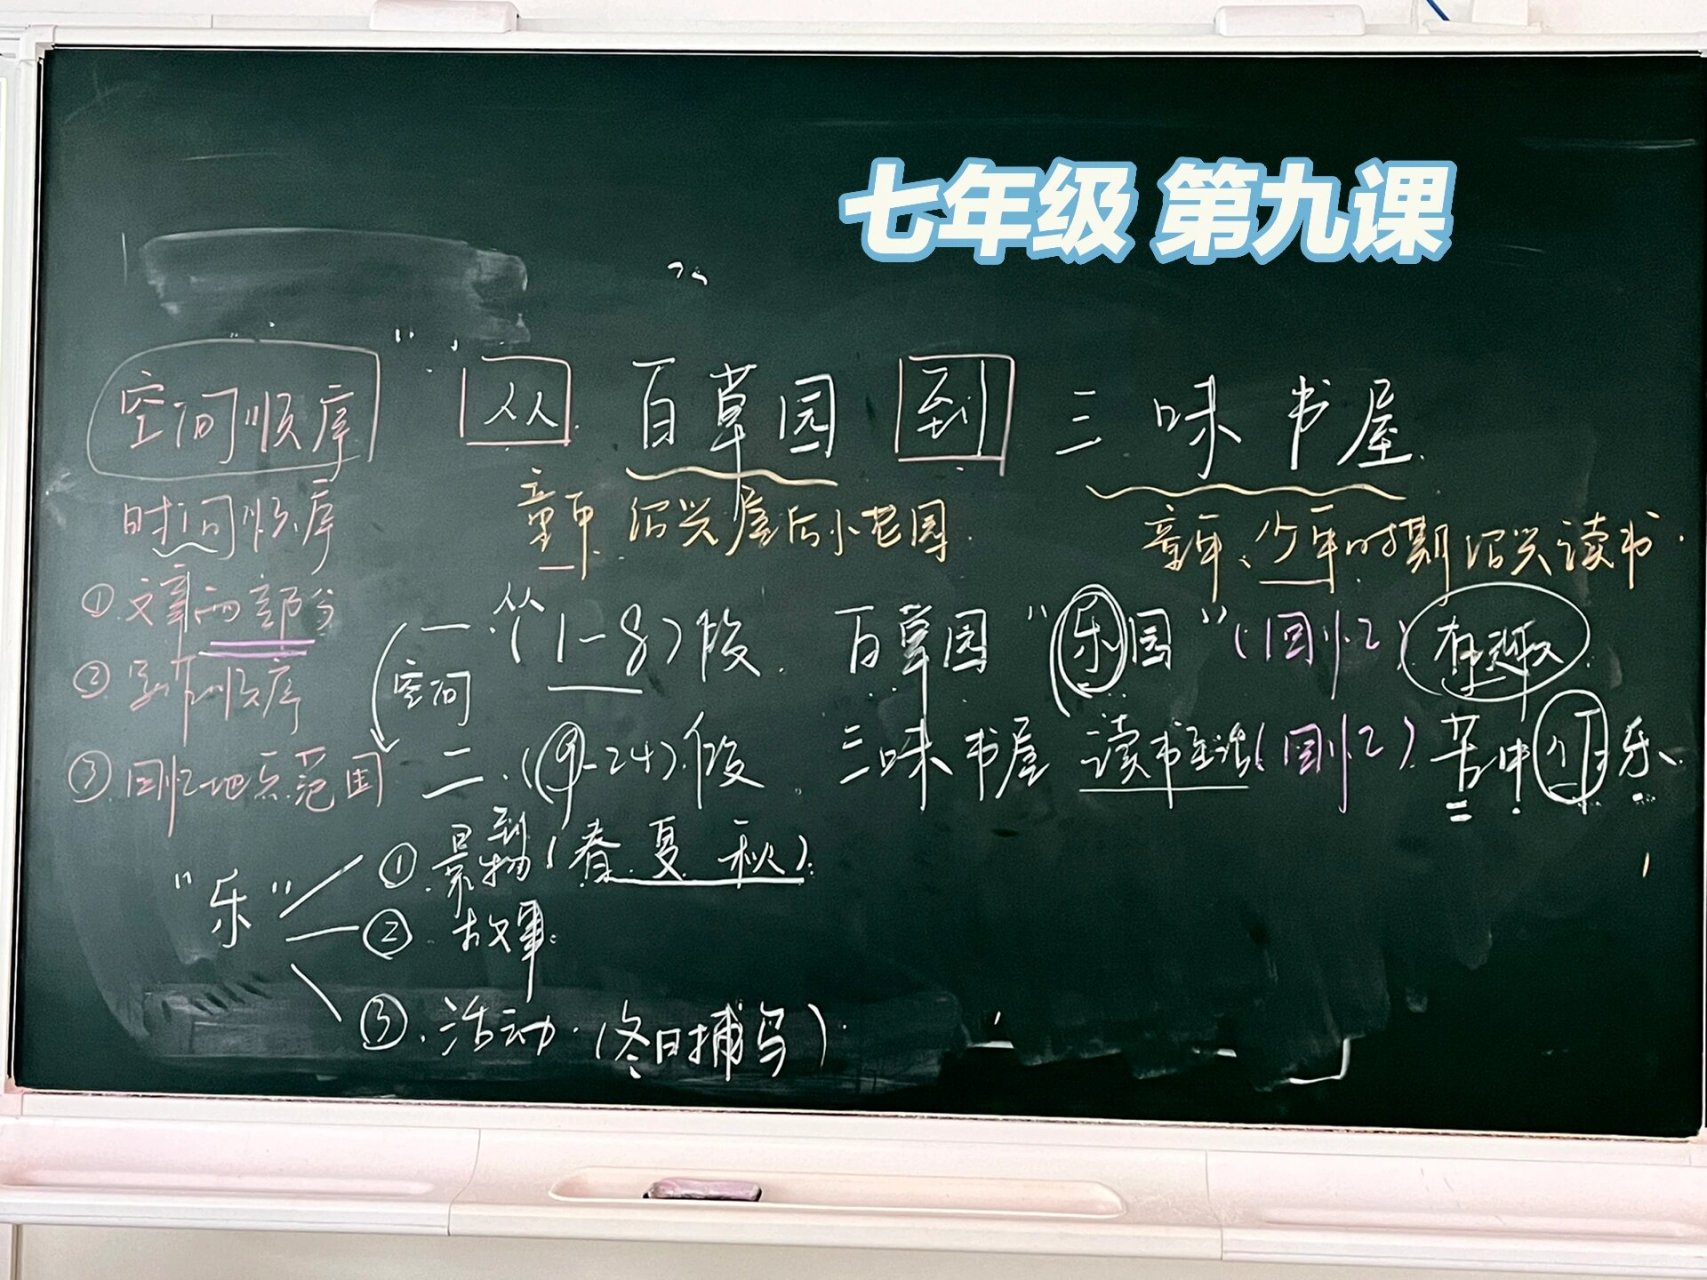 七年级 第九课
空间顺序
从 百草园 到 三味书屋
时间顺序
童年 绍兴屋后小花园
童年、少年时期绍兴读书
①文章两部分
②写作顺序
③回忆地点范围
空间
从
一.(1-8)段 百草园“乐园”(回忆)有趣
二.(9-24)段 三味书屋 读书生活(回忆)苦中有乐
到
“乐”
①.景物(春.夏 秋)
②.故事
③.活动.(冬日捕鸟)